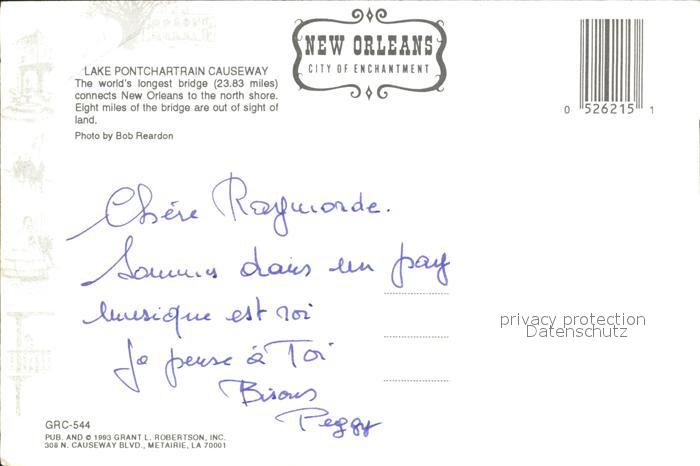 NEW ORLEANS
CITY OF ENCHANTMENT
LAKE PONTCHARTRAIN CAUSEWAY
The world's longest bridge (23.83 miles)
connects New Orleans to the north shore.
Eight miles of the bridge are out of sight of
land.
Photo by Bob Reardon
0 526215 1
Chère Raymonde.
Sommes dans un pay
musique est roi
Je pense à Toi
Bisous
Peggy
privacy protection
Datenschutz
GRC-544
PUB. AND © 1993 GRANT L. ROBERTSON, INC.
308 N. CAUSEWAY BLVD., METAIRIE, LA 70001